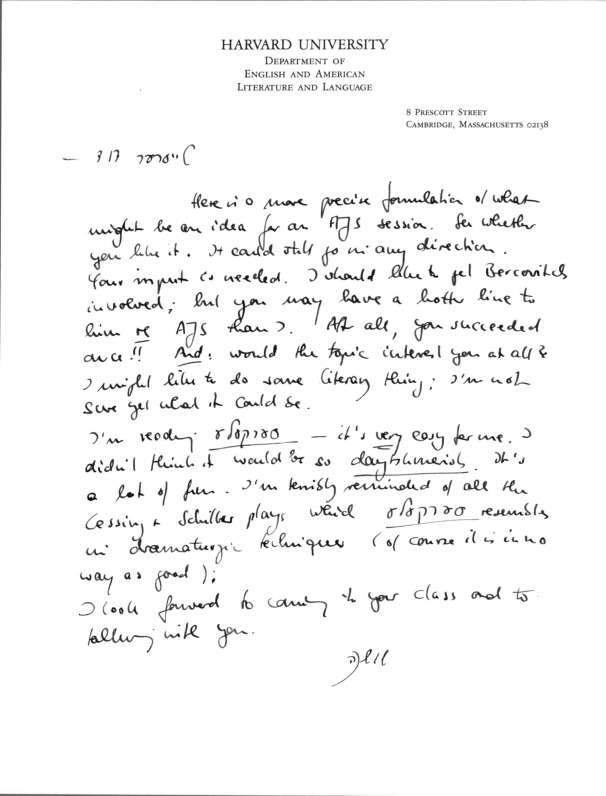 HARVARD UNIVERSITY
DEPARTMENT OF
ENGLISH AND AMERICAN
LITERATURE AND LANGUAGE
8 PRESCOTT STREET
CAMBRIDGE, MASSACHUSETTS 02138
Here is a more precise formulation of what
might be an idea for an AJS session. See whether
you like it. It could still go in any direction.
Your input is needed. I should like to get Bercovitch
involved; but you may have a better line to
him re AJS than I. After all, you succeeded
once!! And: would the topic interest you at all?
I might like to do some literary thing; I'm not
sure yet what it could be.
I'm reading סערקעלע — it's very easy for me. I
didn't think it would be so daytshmerish. It's
a lot of fun. I'm terribly reminded of all the
Lessing & Schiller plays which סערקעלע resembles
in dramaturgic techniques (of course it is in no
way as good);
I look forward to coming to your class and to
talking with you.